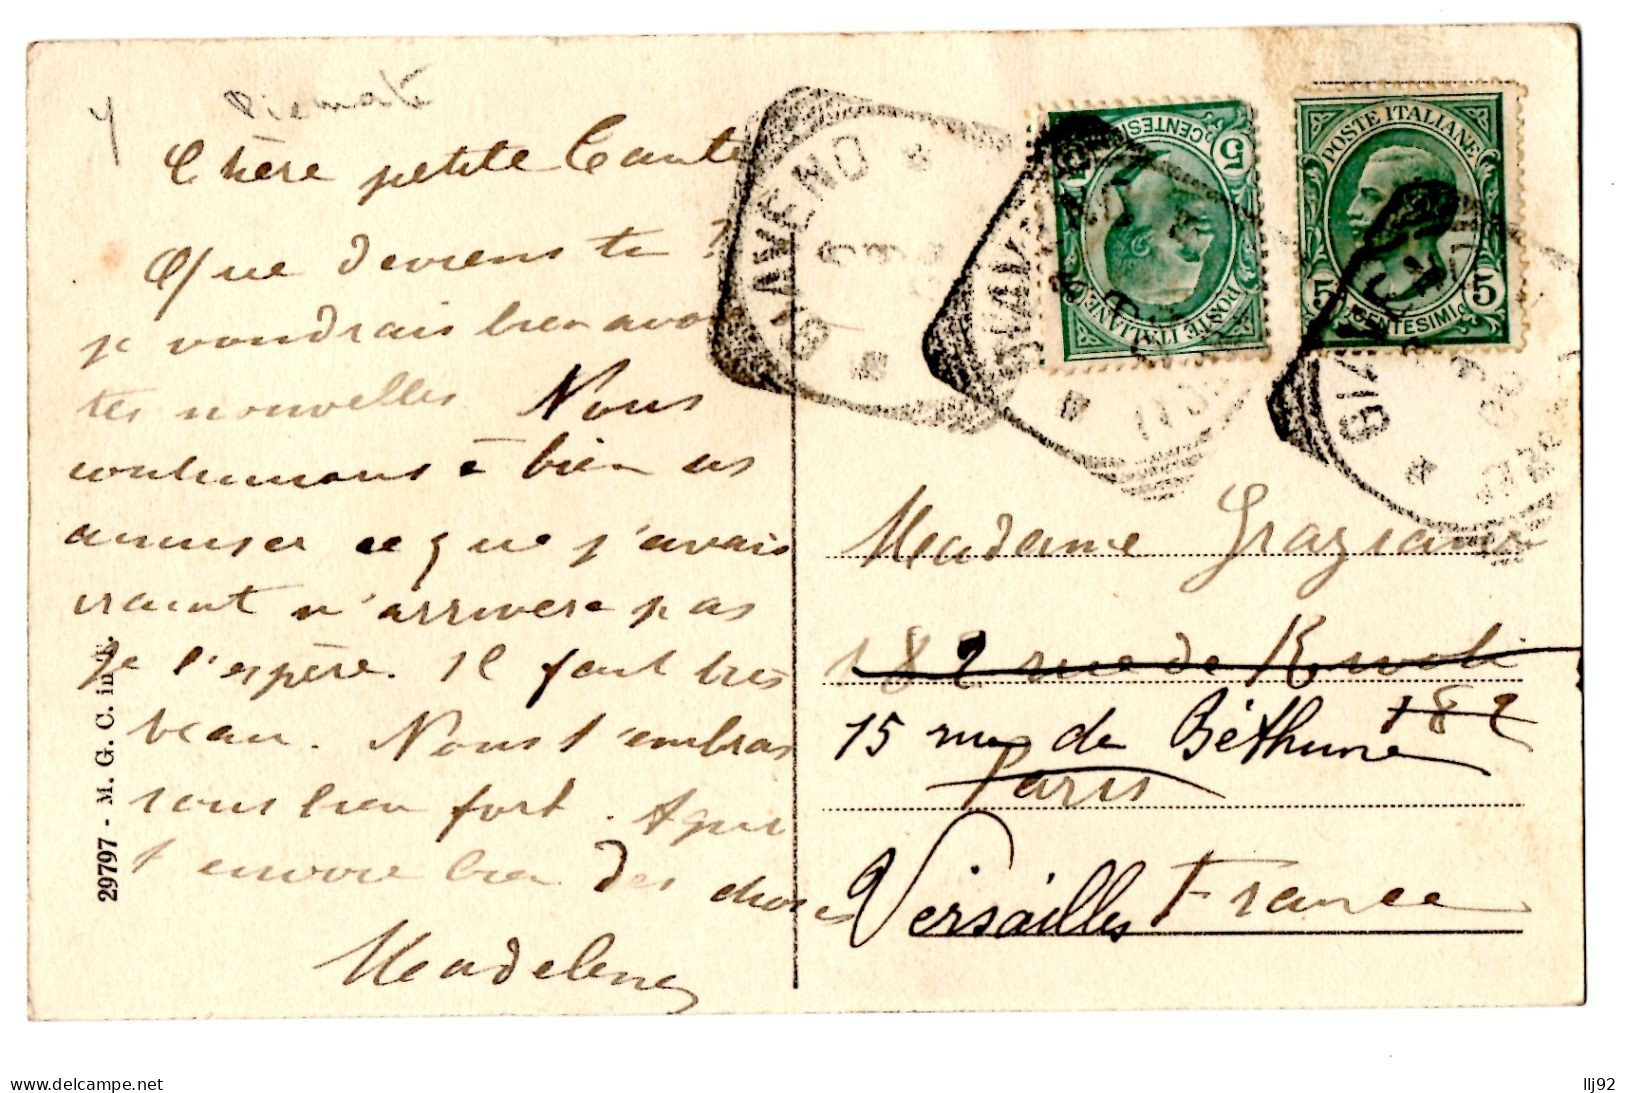 Piemont
Chère petite Tante
Que deviens tu ?
je voudrais bien avoir
tes nouvelles. Nous
continuons à bien us
amuser ce que j'avais
craint n'arrivera pas
je l'espère. Il fait très
beau. Nous t'embras
sons bien fort.
t'envoie bien des choses
Madeleine
29797 - M. G. C. in T.
BAVENO
POSTE ITALIANE
5 CENTESIMI 5
POSTE ITALIANE
5 CENTESIMI 5
Madame Graziani
182 rue de Rivoli
182
15 rue de Béthune
Paris
Versailles France
delcampe.net
llj92